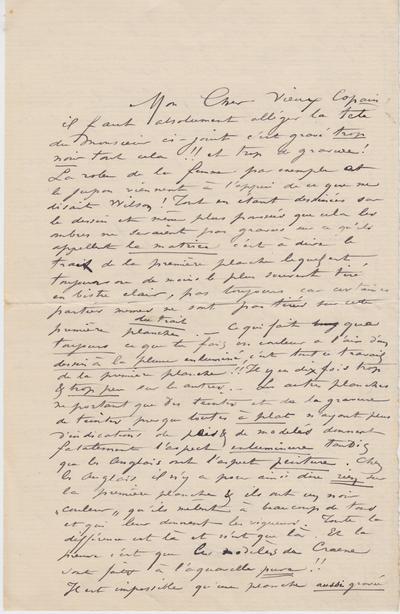 Mon Cher Vieux Copain
il faut absolument alléger la tête
du Monsieur ci-joint c'est gravé trop
noir tout cela !! et trop de gravure!
La robe de la femme par exemple et
le jupon viennent à l'appui de ce que me
disait Wilson! Tout en étant dessinées sur
le dessin et même plus poussées que cela les
ombres ne seraient pas gravées sur ce qu'ils
appellent la matrice c'est à dire le
trait de la première planche laquelle est,
toujours ou du moins le plus souvent tiré
en bistre clair, pas toujours car certaines
parties même ne sont pas tirées sur cette
première planche. — Ce qui fait que
du trait
toujours ce que tu fais en couleur a l'air d'un
dessin à la plume enluminé, c'est tout ce travail
de la première planche!!! Il y en a dix fois trop
& trop peu sur les autres. — Les autres planches
ne portant que des teintes et de la gravure
de teintes presque toutes à plat n'ayant plus
d'indications de plis & de modelés donnent
fatalement l'aspect enluminure tandis
que les Anglais ont l'aspect peinture. Chez
les Anglais il n'y a pour ainsi dire rien sur
la première planche & ils ont un noir
"couleur" qu'ils mêlent à beaucoup de tons
et qui leur donnent les vigueurs. Toute la
différence est là et n'est que là. Et la
preuve c'est que les modèles de Crane
sont faits à l'aquarelle pure!!
Il est impossible qu'une planche aussi gravée